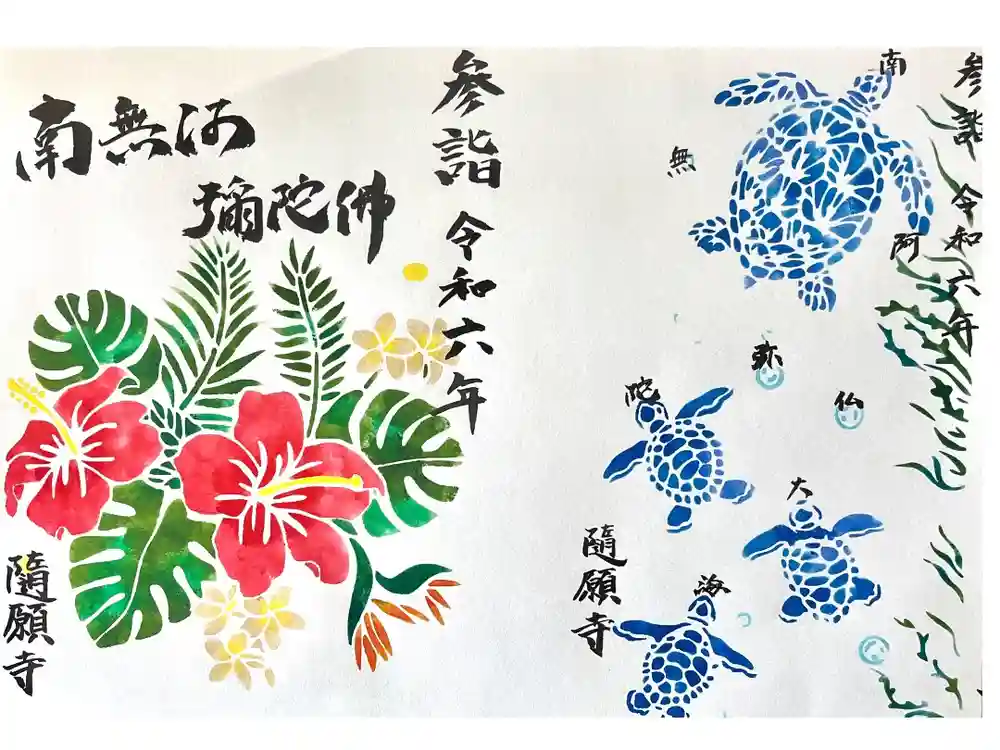 南無阿
彌陀佛
参詣 令和六年
隨願寺
参詣 令和六年
南
無
阿
弥
陀
仏
大
海
隨願寺